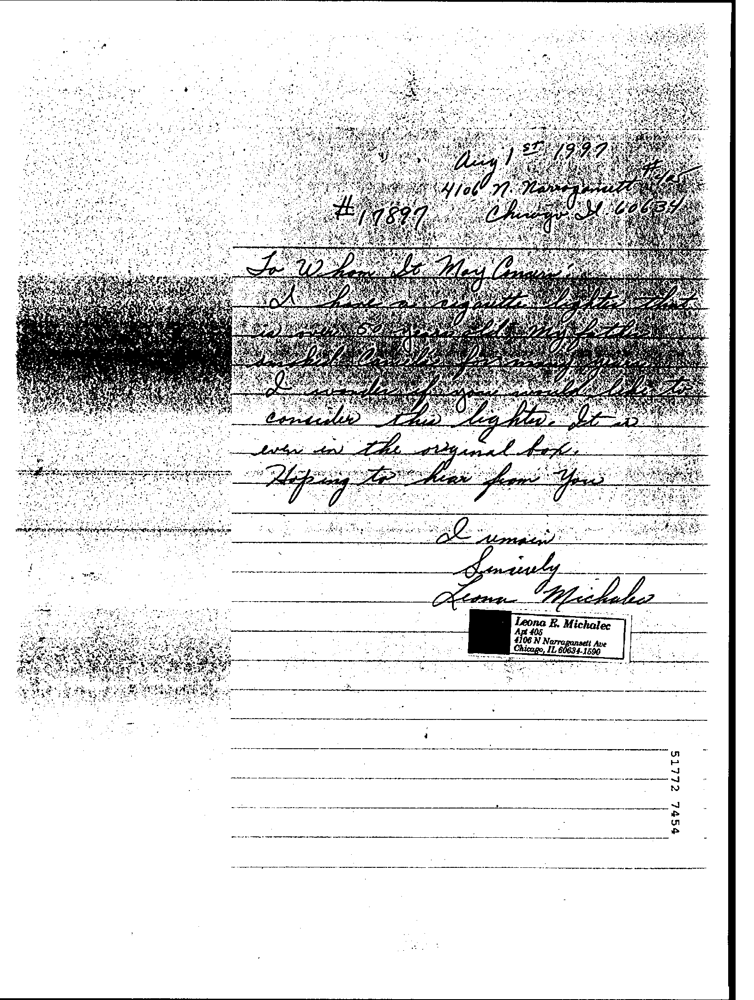 Aug 1 ST 1997
4106 N. Narragansett #405
#17897 Chicago Il 60634
To Whom It May Concern:
I have a cigarette lighter that
is over 50 years old. My father
smoked Camels for many years.
I wonder if you would like to
consider this lighter. It is
even in the original box.
Hoping to hear from You
I remain
Sincerely
Leona Michalec
Leona E. Michalec
Apt 405
4106 N Narragansett Ave
Chicago, IL 60634-1590
51772 7454